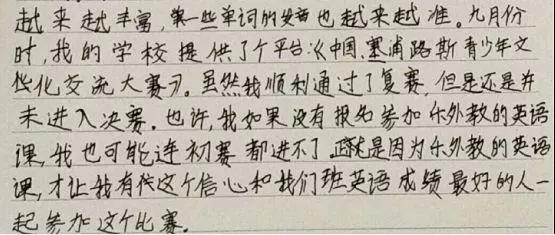 越来越丰富,某一些单词的发音也越来越准。九月份
时,我的学校提供了个平台:《中国.塞浦路斯青少年文
化交流大赛》。虽然我顺利通过了复赛,但是还是并
未进入决赛。也许,我如果没有报名参加乐外教的英语
课,我也可能连初赛都进不了。正是因为乐外教的英语
课,才让我有信这个信心和我们班英语成绩最好的人一
起参加这个比赛。